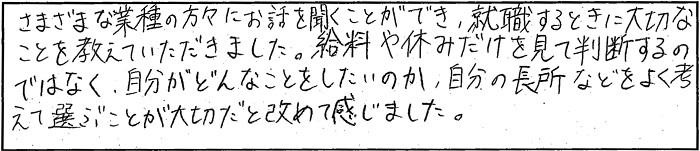 さまざまな業種の方々にお話を聞くことができ、就職するときに大切な
ことを教えていただきました。給料や休みだけを見て判断するの
ではなく、自分がどんなことをしたいのか、自分の長所などをよく考
えて選ぶことが大切だと改めて感じました。